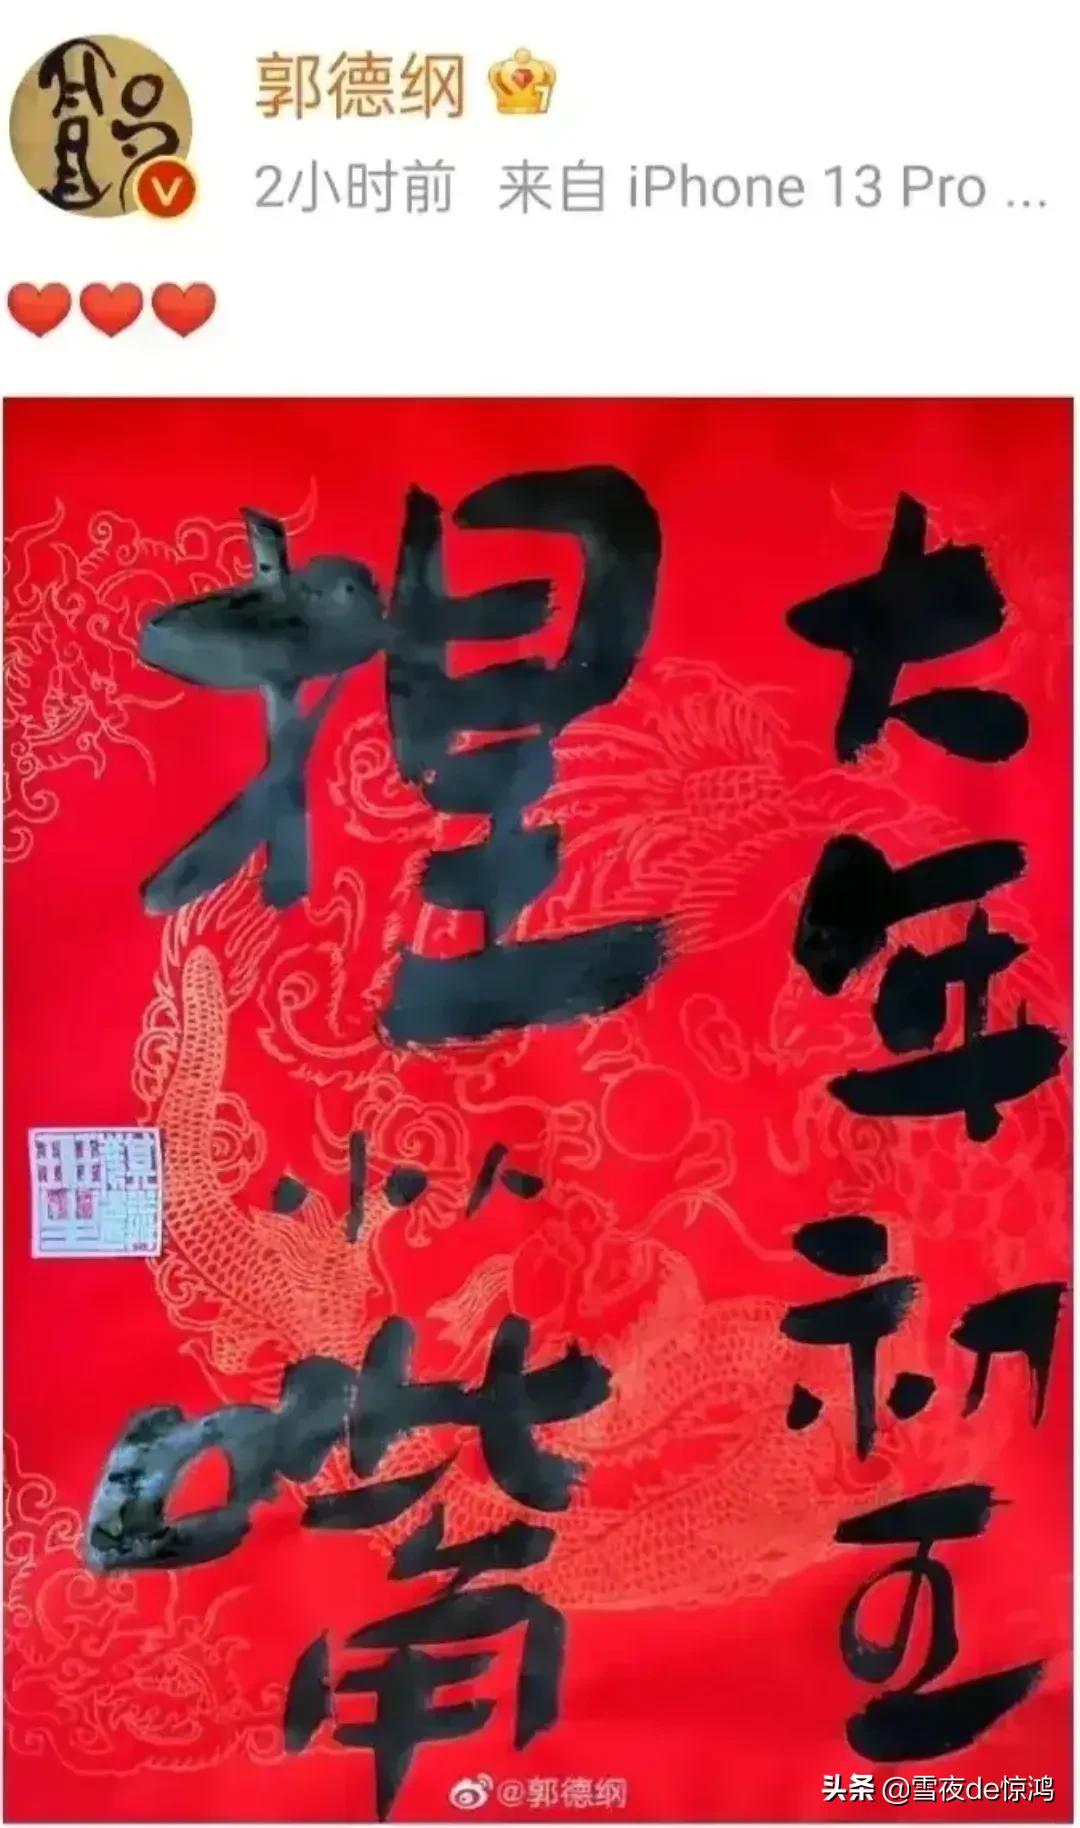 郭德纲
2小时前 来自 iPhone 13 Pro ...
大年初五
捏小人嘴
@郭德纲
头条 @雪夜de惊鸿